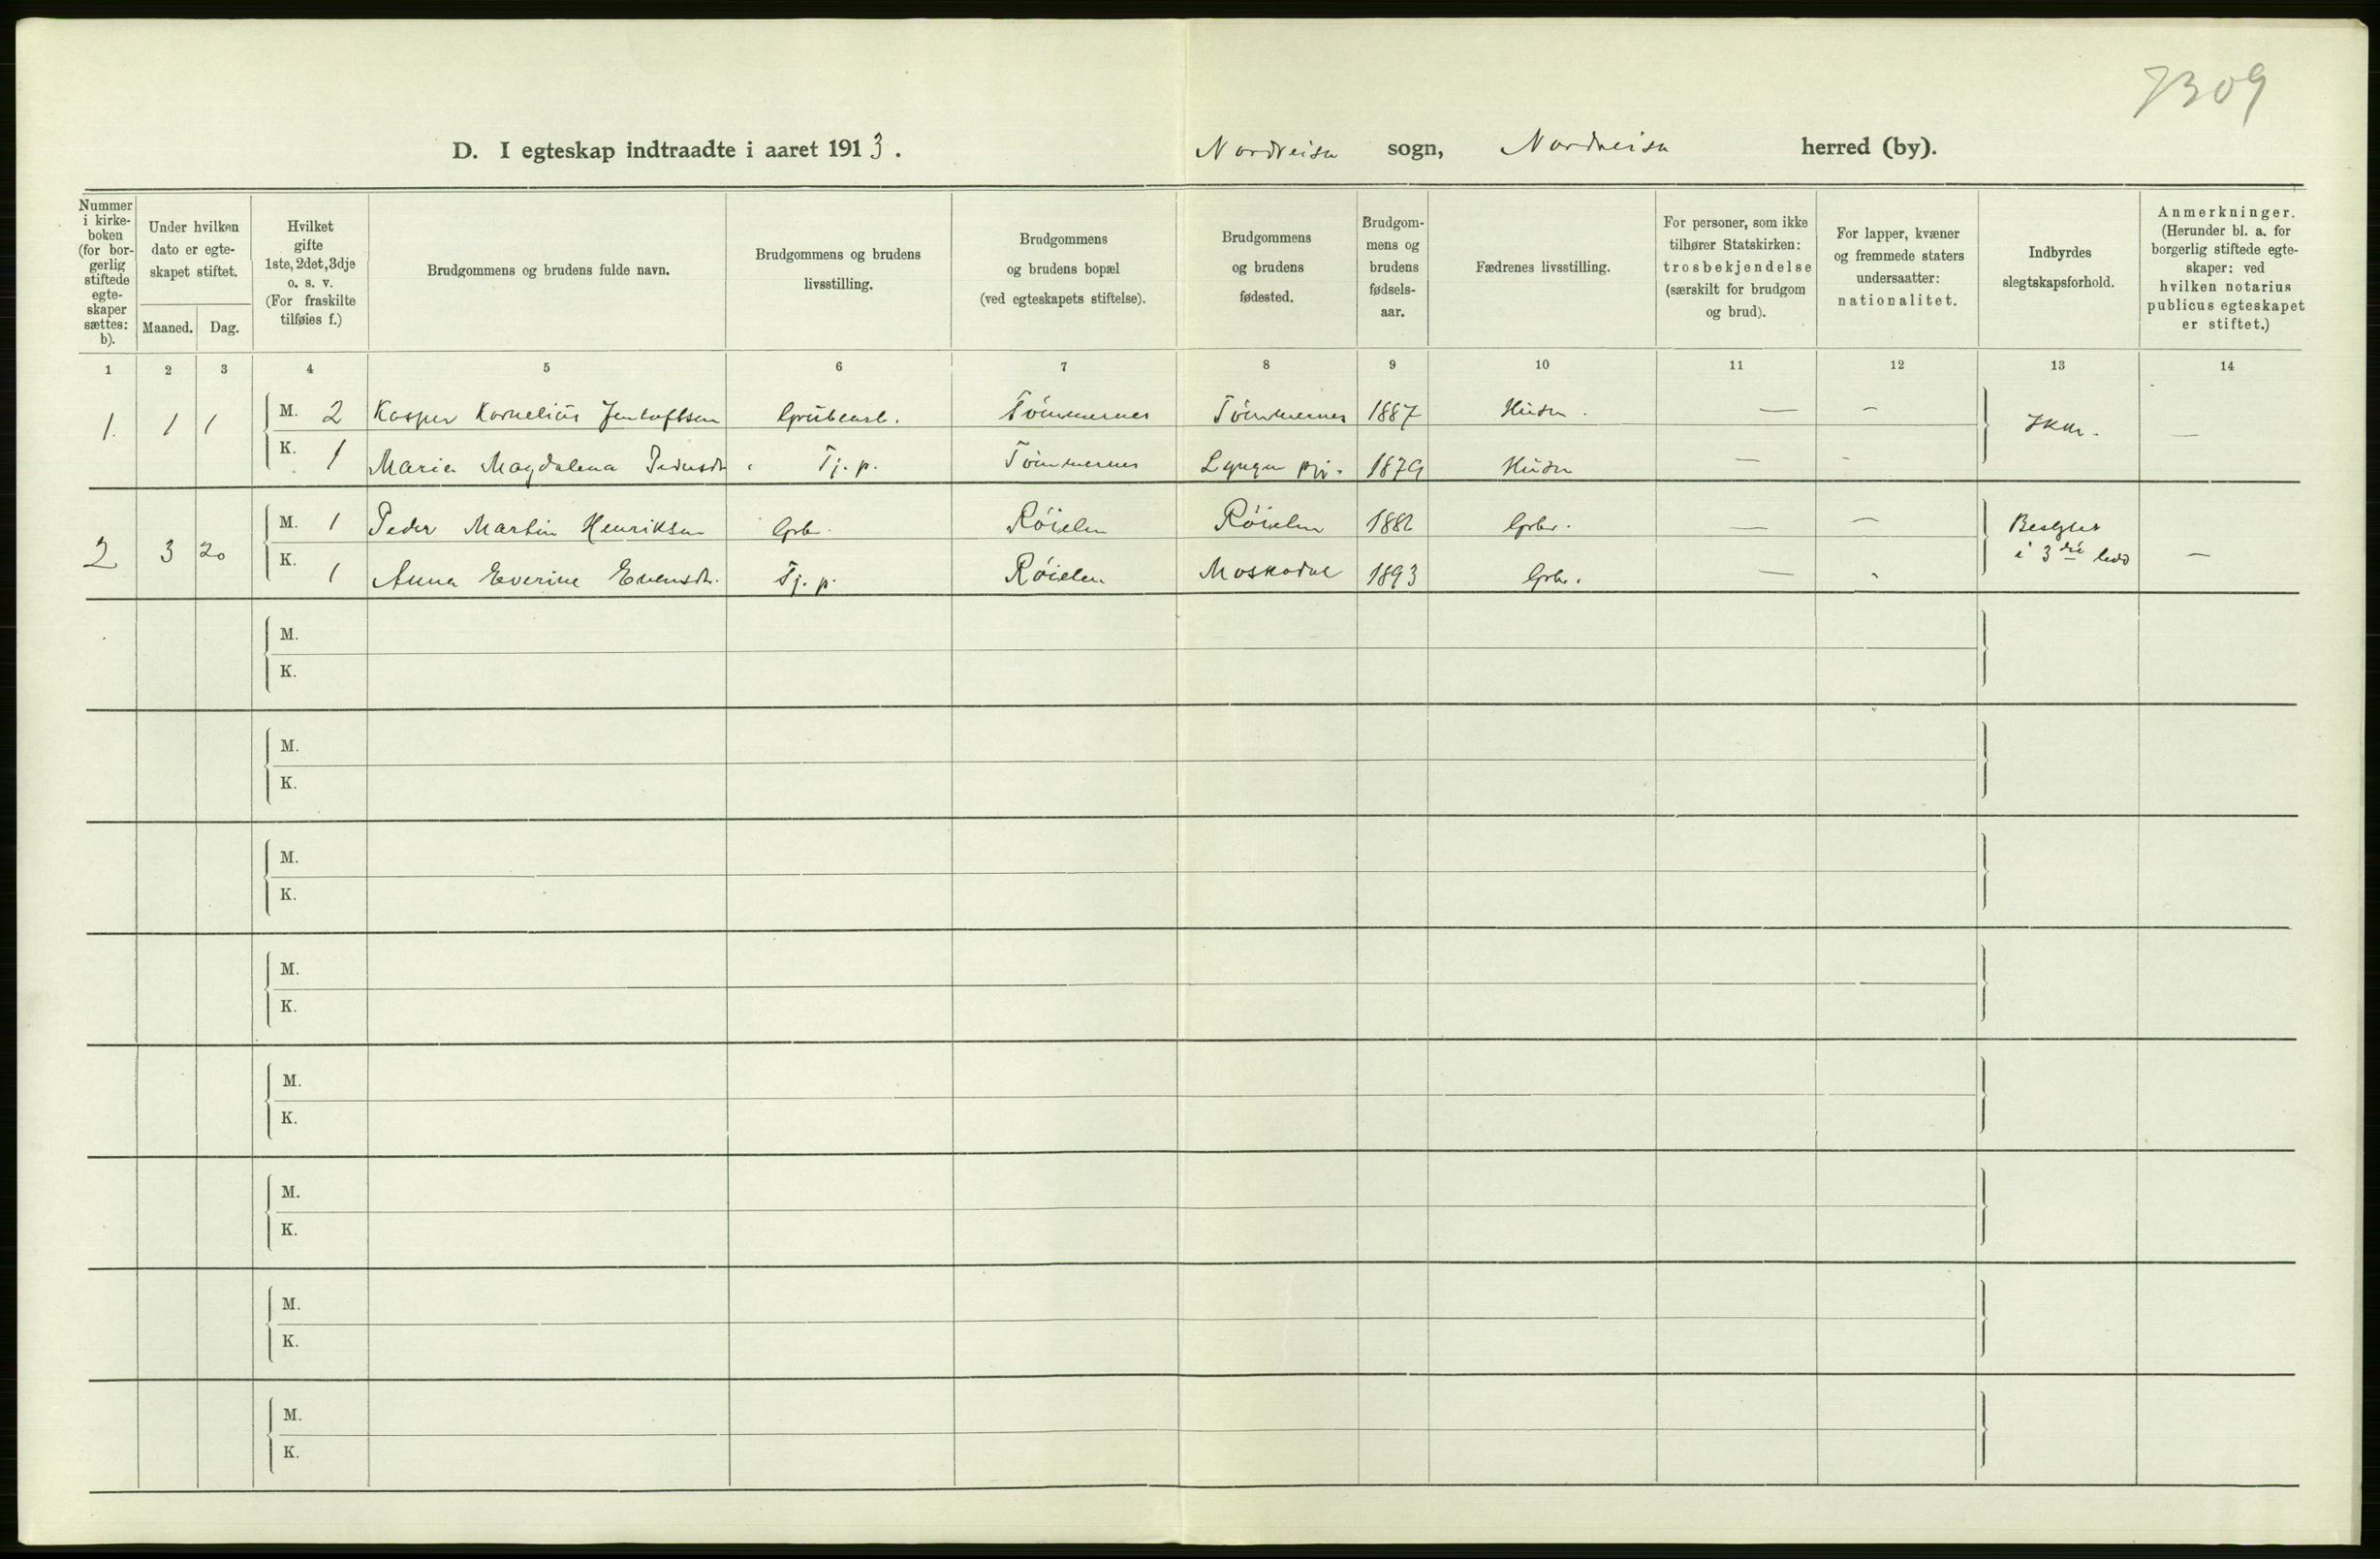 7309
D. I egteskap indtraadte i aaret 1913.
Nordreisa sogn, Nordreisa herred (by).
Nummer i kirke-boken (for bor-gerlig stiftede egte-skaper sættes: b).
Under hvilken dato er egte-skapet stiftet.
Maaned. Dag.
Hvilket gifte 1ste, 2det, 3dje o. s. v. (For fraskilte tilføies f.)
Brudgommens og brudens fulde navn.
Brudgommens og brudens livsstilling.
Brudgommens og brudens bopæl (ved egteskapets stiftelse).
Brudgommens og brudens fødested.
Brudgom-mens og brudens fødsels-aar.
Fædrenes livsstilling.
For personer, som ikke tilhører Statskirken: trosbekjendelse (særskilt for brudgom og brud).
For lapper, kvæner og fremmede staters undersaatter: nationalitet.
Indbyrdes slegtskapsforhold.
Anmerkninger. (Herunder bl. a. for borgerlig stiftede egte-skaper: ved hvilken notarius publicus egteskapet er stiftet.)
1 2 3 4 5 6 7 8 9 10 11 12 13 14
1. 1 1 M. 2 Kasper Kornelius Jentoftsen Grubearb. Tömmernes Tömmernes 1887 — — —
K. 1 Maria Magdalena Pedersdtr. Tj. p. Tömmernes Lyngen 1879 — -
2 3 20 M. 1 Peder Martin Henriksen Grbr. Röielen Röielen 1886 Grbr. — — Beslgtet i 3die ledd —
K. 1 Anna Everine Evensdtr. Tj. p. Röielen Moskodal 1893 Grbr. — -
M.
K.
M.
K.
M.
K.
M.
K.
M.
K.
M.
K.
M.
K.
M.
K.